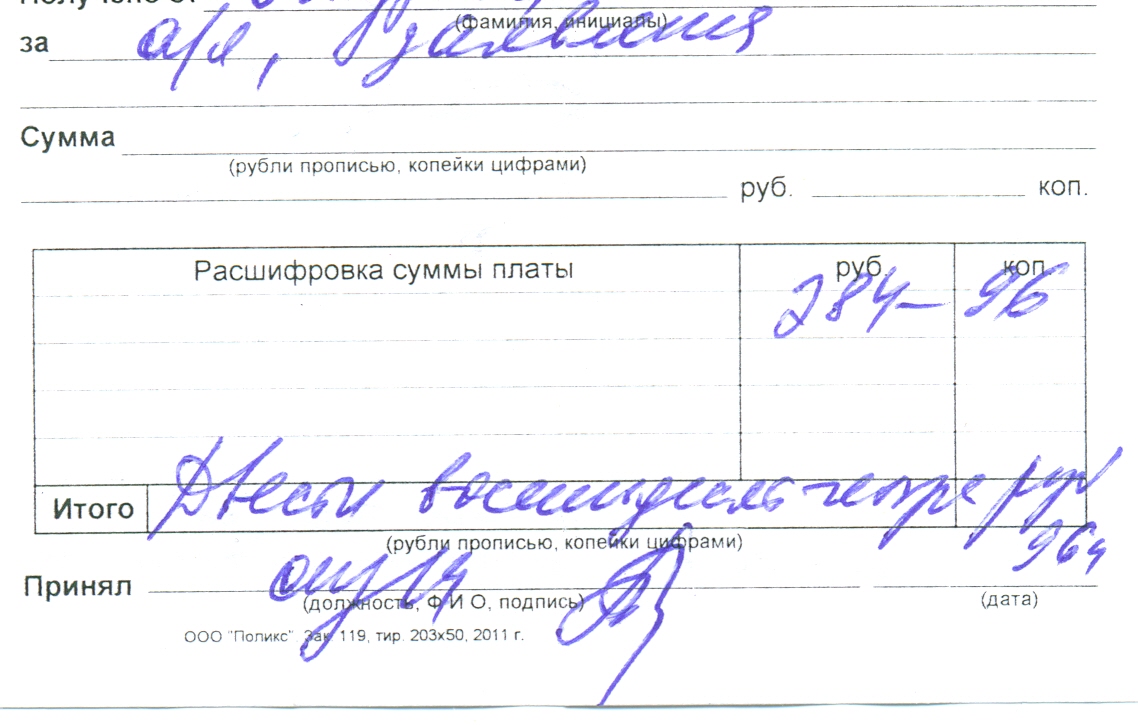 Получено от
(фамилия, инициалы)
за а/я, заявления
Сумма
(рубли прописью, копейки цифрами)
руб. коп.
Расшифровка суммы платы руб. коп.
284- 96
Итого Двести восемьдесят четыре руб
96
(рубли прописью, копейки цифрами)
Принял
(должность, Ф И О, подпись) (дата)
ООО "Поликс" Зак. 119, тир. 203х50, 2011 г.